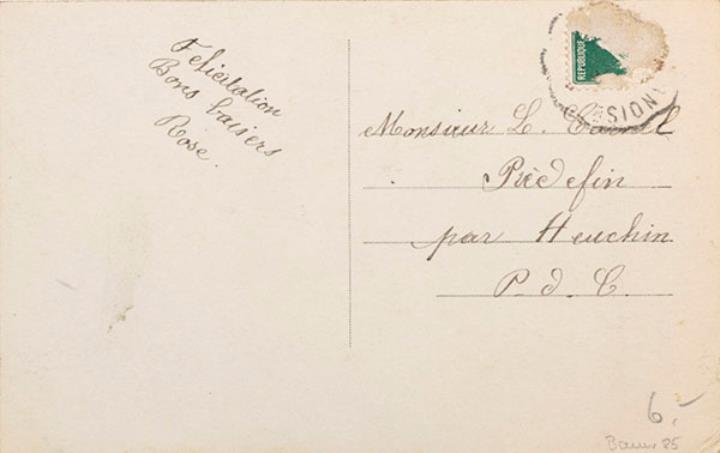 Felicitation
Bons baisers
Rose.
REPUBLIQUE
Monsieur L.
Prédefin
par Heuchin
P. d. C.
6.-
85